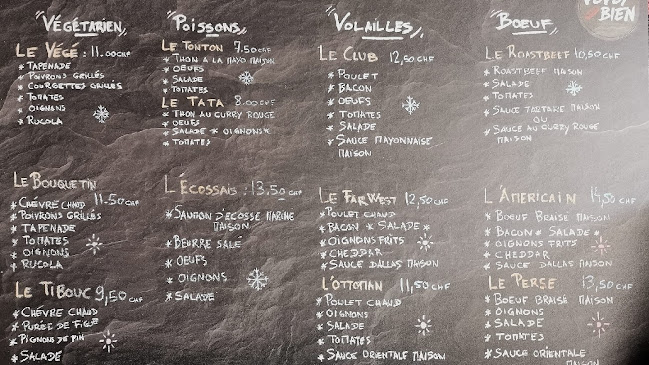 Végétarien
Le Végé : 11.00 CHF
* Tapenade
* Poivrons grillés
* Courgettes grillés
* Tomates
* Oignons
* Rucola
Le Bouquetin 11.50 CHF
* Chévre chaud
* Poivrons grillés
* Tapenade
* Tomates
* Oignons
* Rucola
Le Tibouc 9,50 CHF
* Chévre chaud
* Purée de figue
* Pignons de pin
* Salade
Poissons
Le Tonton 7.50 CHF
* Thon a la mayo maison
* Oeufs
* Salade
* Tomates
Le Tata 8.00 CHF
* Thon au curry rouge
* Oeufs
* Salade * Oignons *
* Tomates
L'Écossais : 13.50 CHF
* Saumon d'ecosse mariné
maison
* Beurre salé
* Oeufs
* Oignons
* Salade
Volailles
Le Club 12,50 CHF
* Poulet
* Bacon
* Oeufs
* Tomates
* Salade
* Sauce mayonnaise
maison
Le Far West 12,50 CHF
* Poulet chaud
* Bacon * Salade *
* Oignons frits
* Cheddar
* Sauce dallas maison
L'Ottoman 11,50 CHF
* Poulet chaud
* Oignons
* Salade
* Tomates
* Sauce orientale maison
Boeuf
Le Roastbeef 10,50 CHF
* Roastbeef maison
* Salade
* Tomates
* Sauce tartare maison
ou
* Sauce au curry rouge
maison
L'Américain 14,50 CHF
* Boeuf braisé maison
* Bacon * Salade *
* Oignons frits
* Cheddar
* Sauce dallas maison
Le Perse 13,50 CHF
* Boeuf braisé maison
* Oignons
* Salade
* Tomates
* Sauce orientale
maison
BIEN